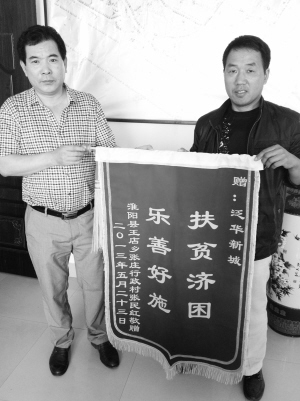 赠：泛华新城
扶贫济困
乐善好施
淮阳县王店乡张庄行政村张民红敬赠
二〇一三年五月二十三日